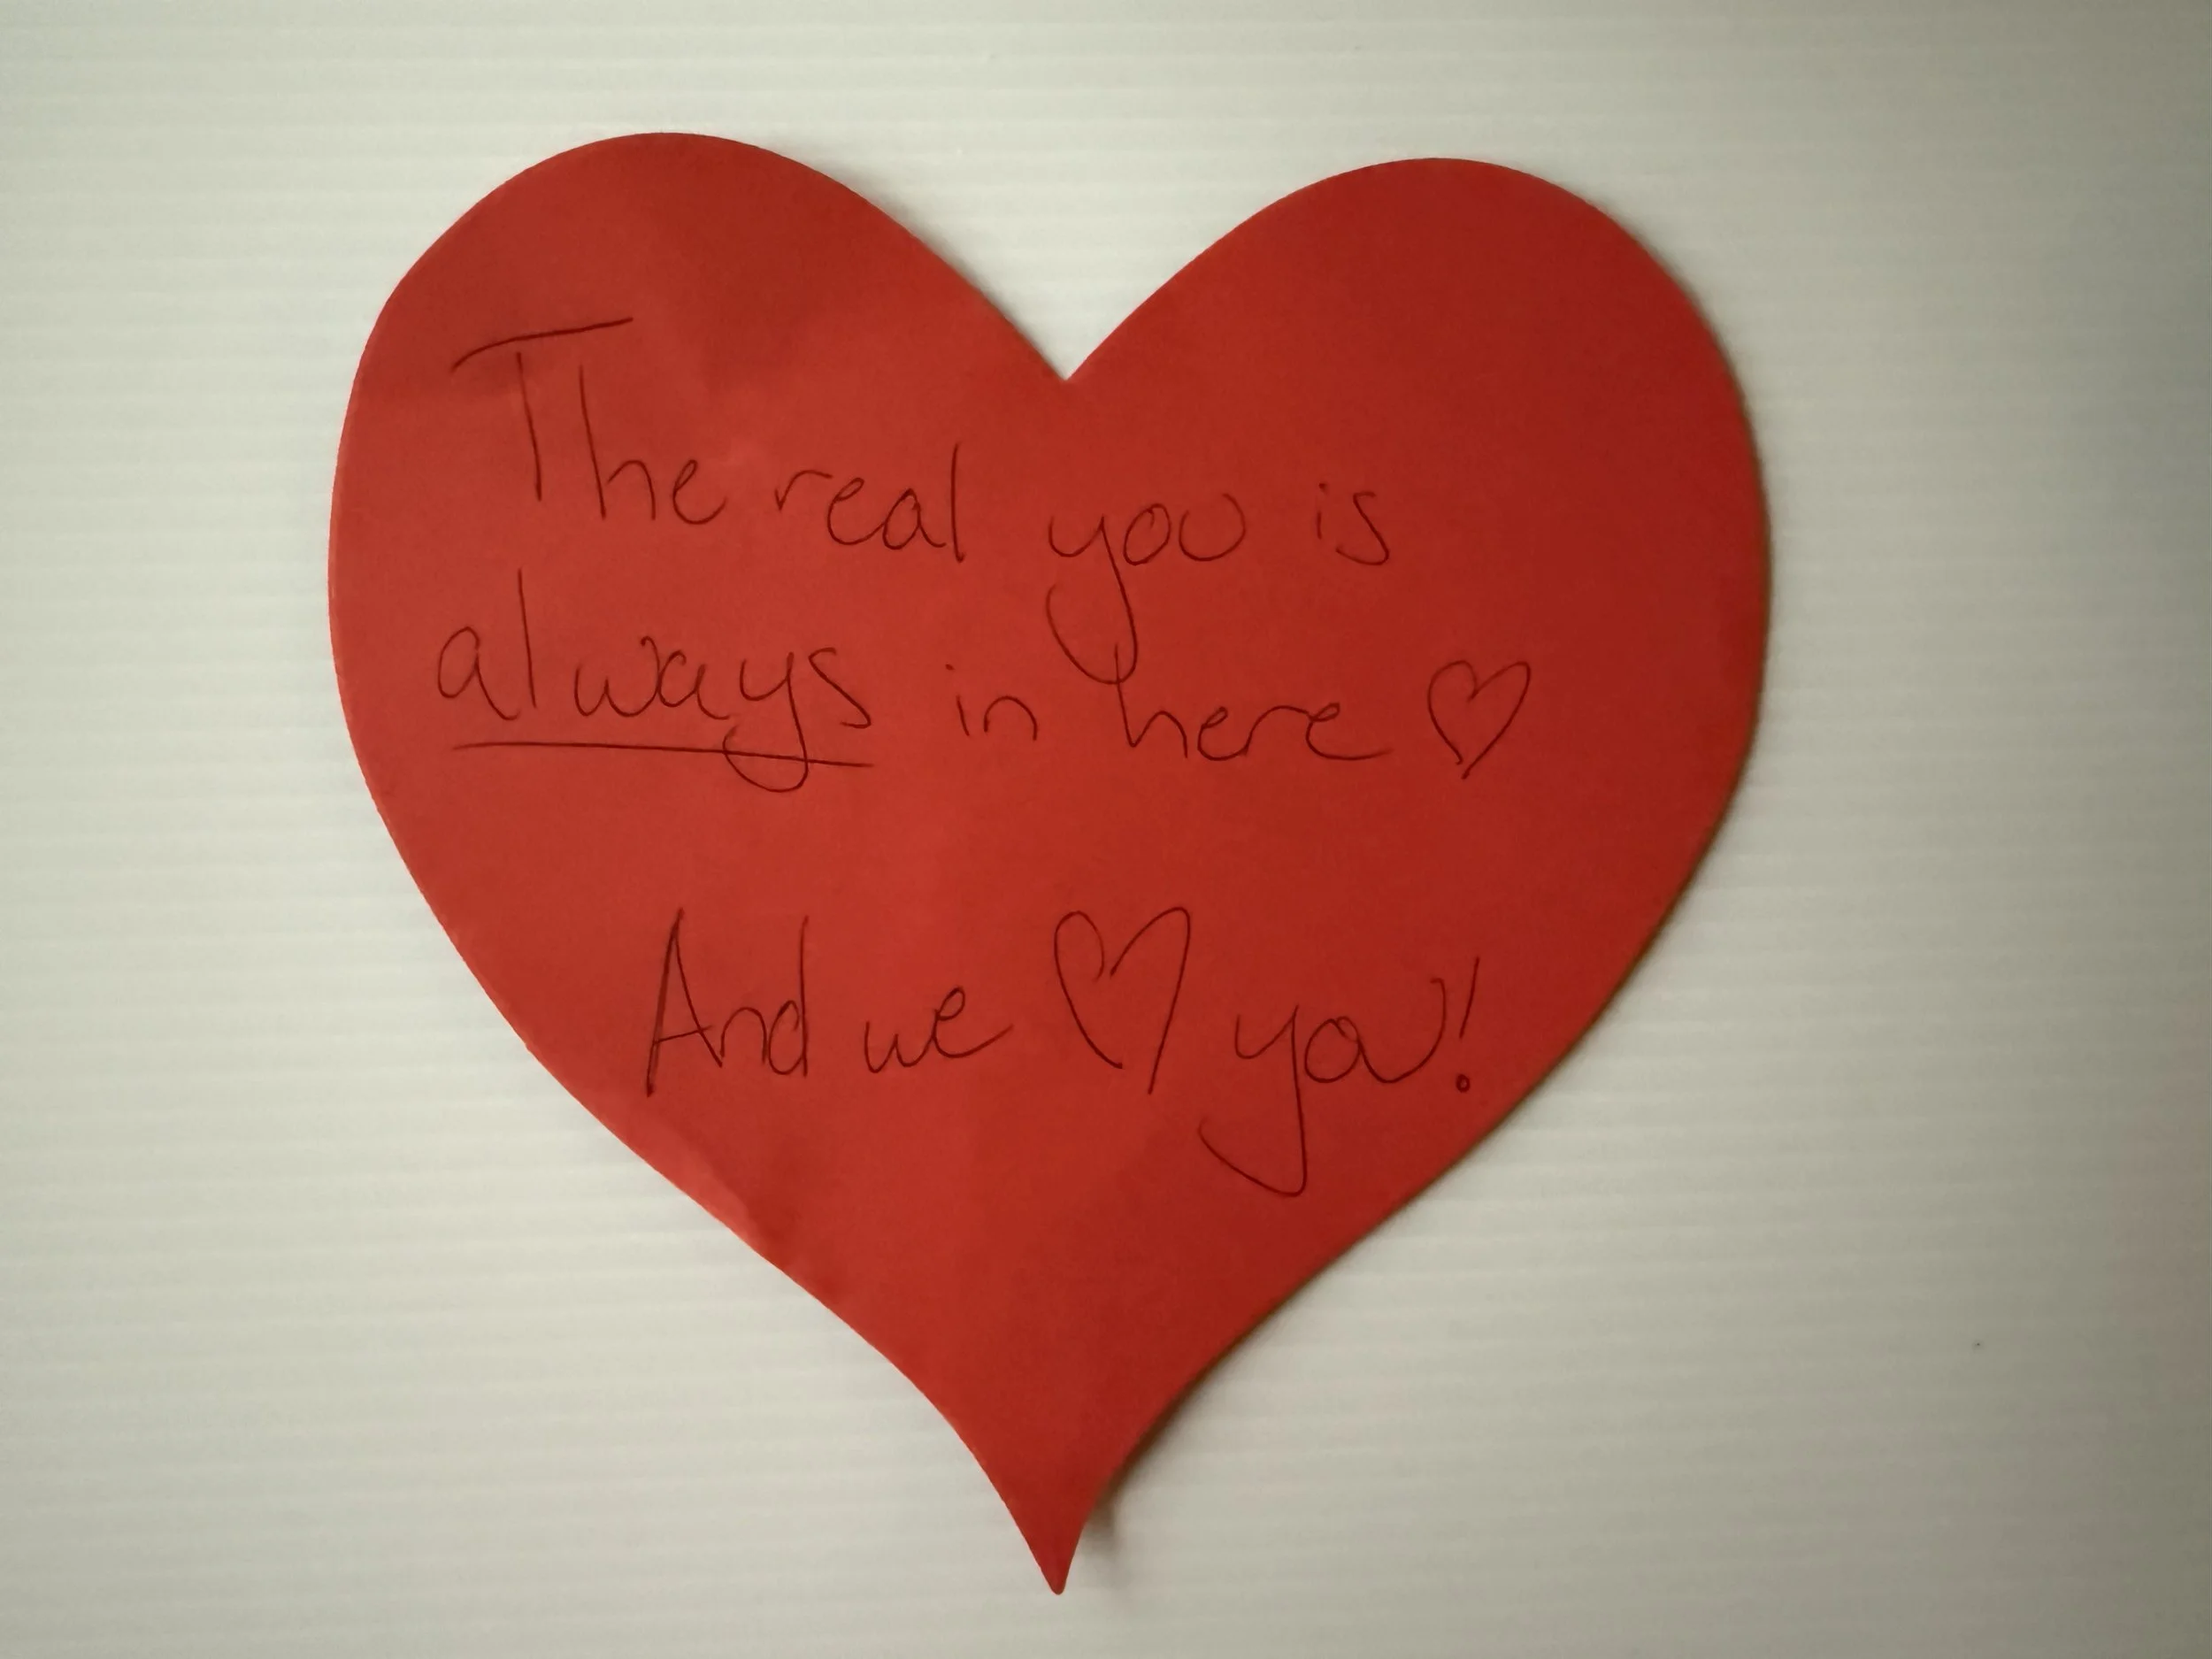 The real you is
always in here ♡
And we ♡ you!